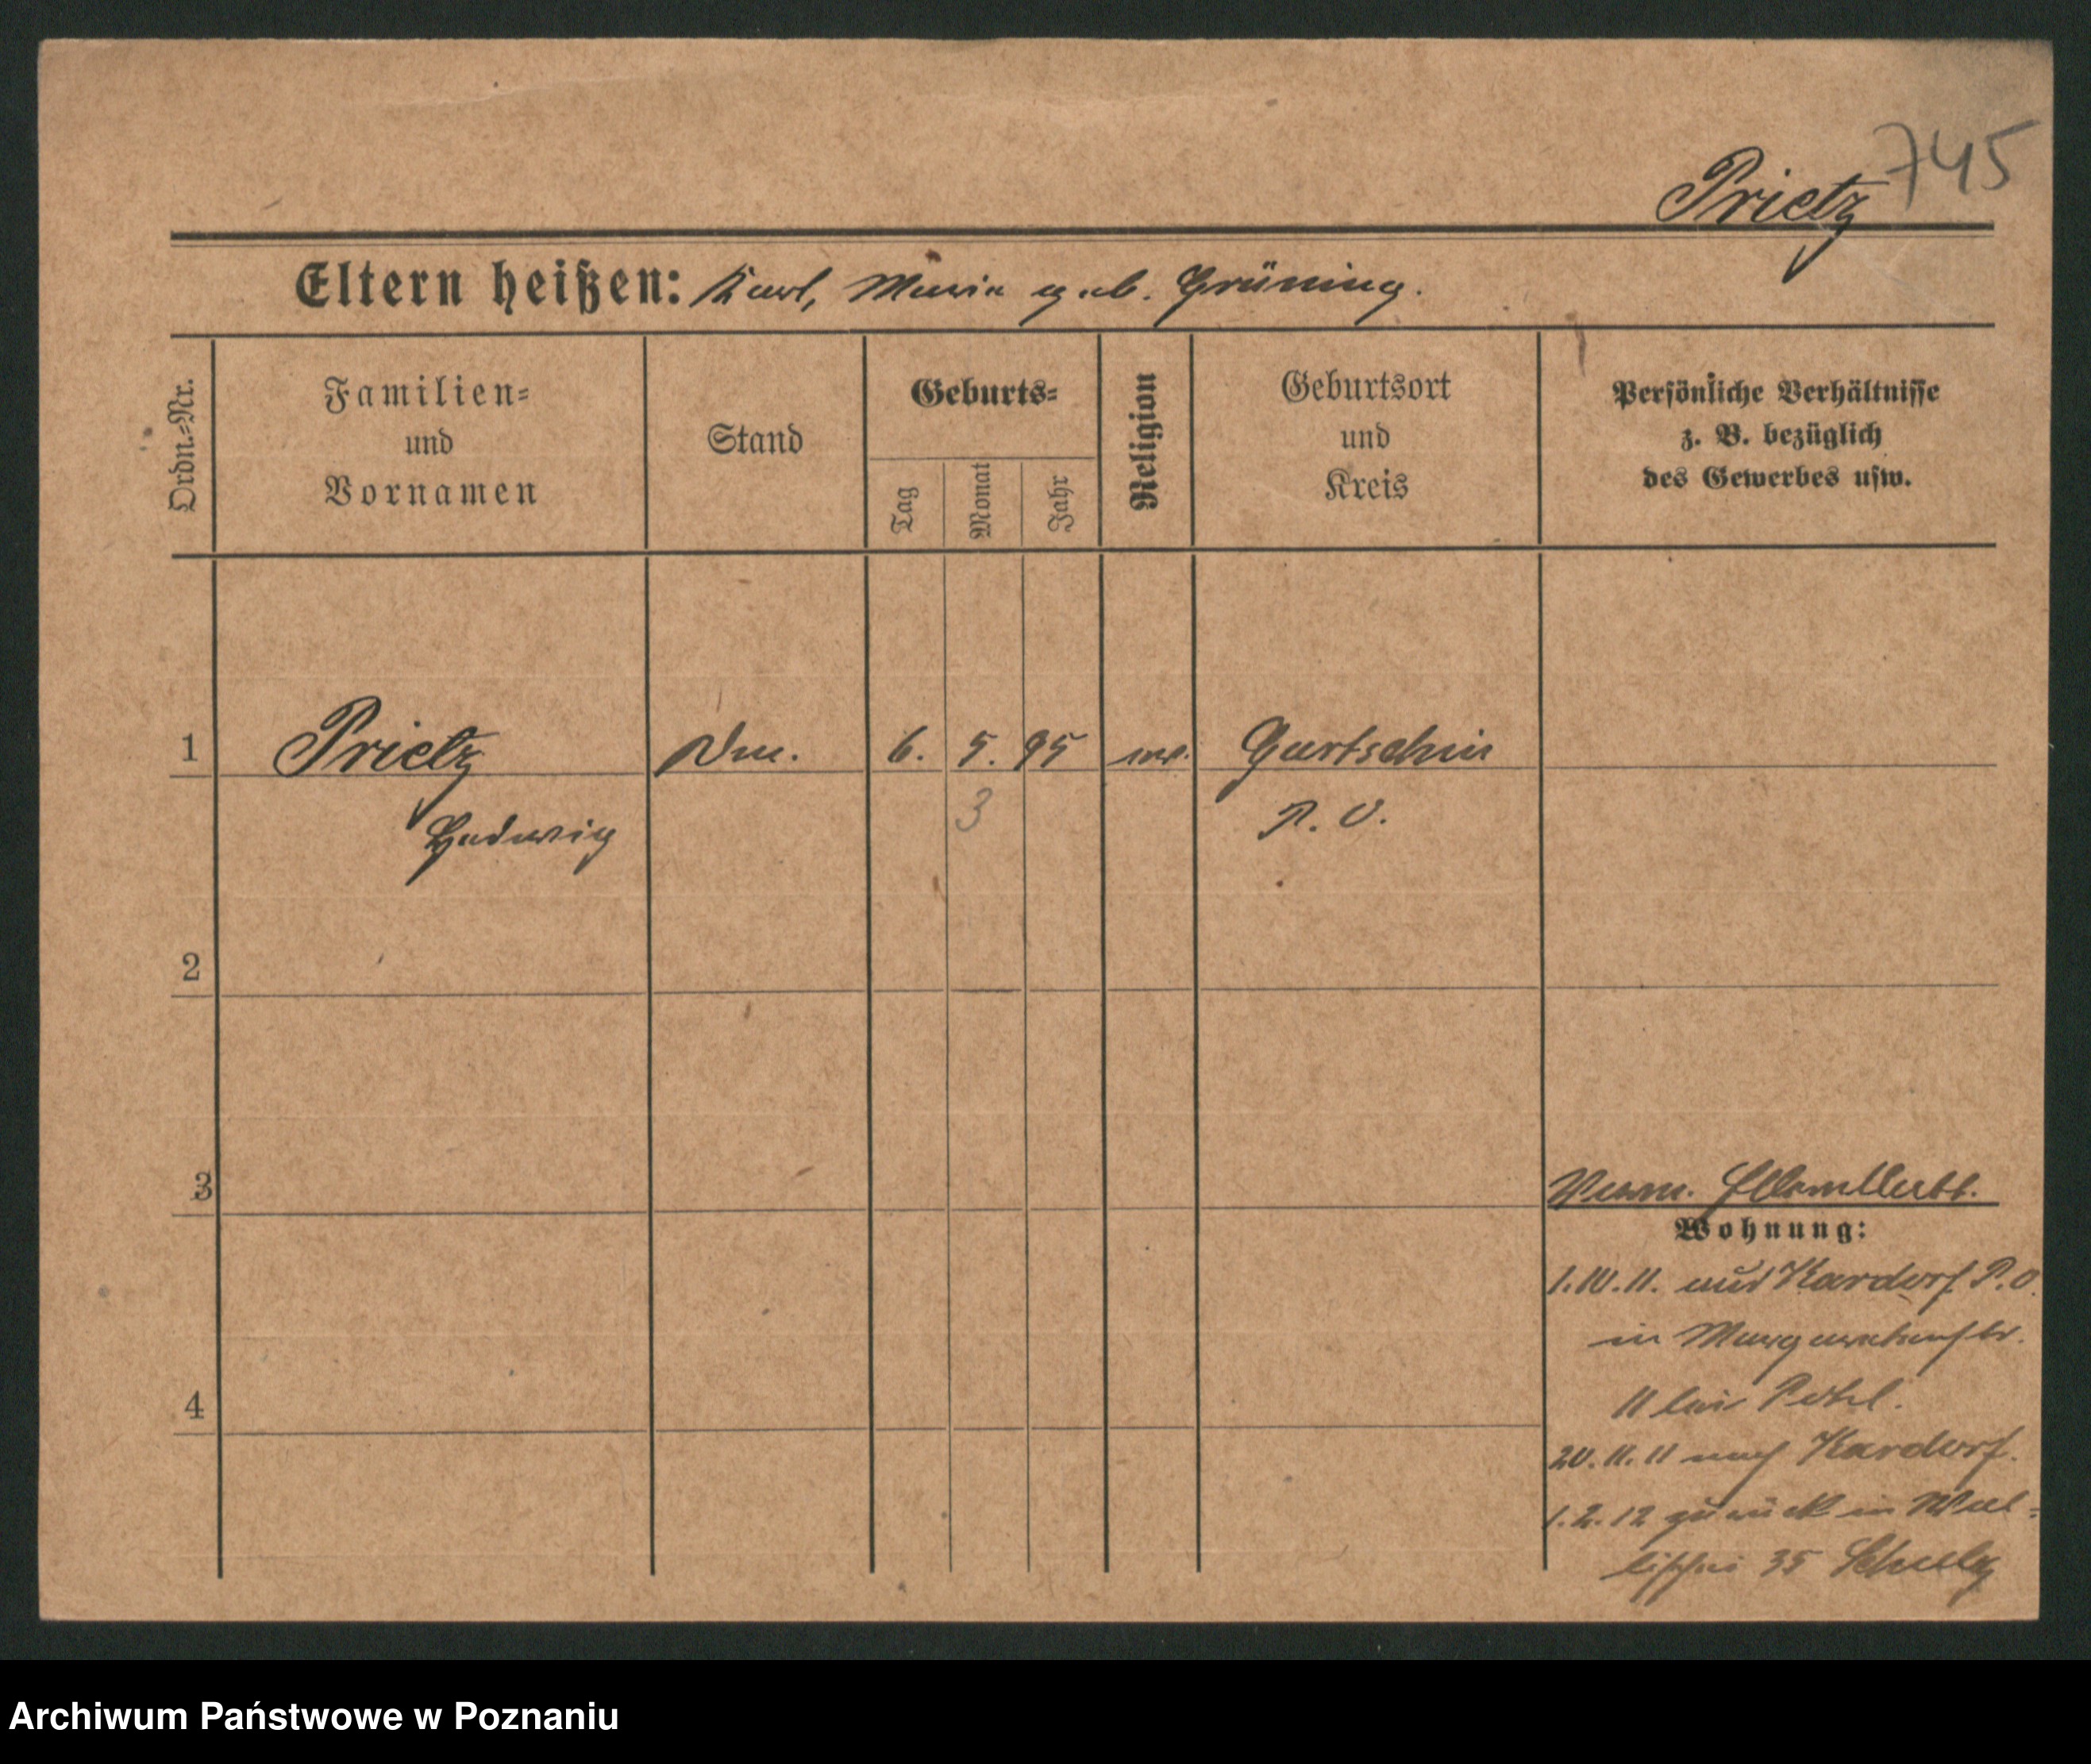 745
Prietz
Eltern heißen: Karl, Maria geb. Grüning.
Ordn.-Nr.
Familien-
und
Vornamen
Stand
Geburts-
Tag
Monat
Jahr
Religion
Geburtsort
und
Kreis
Persönliche Verhältnisse
z. B. bezüglich
des Gewerbes usw.
1 Prietz 6. 5. 95 ev. Gurtschin
3 P. O.
Hedwig
2
3
Wohnung:
1.10.11. aus Kardorf P.O.
in
11 bei
4
20.11.11 nach Kardorf.
1.2.12 zurück in Wal-
lischei 35 Schulz
Archiwum Państwowe w Poznaniu